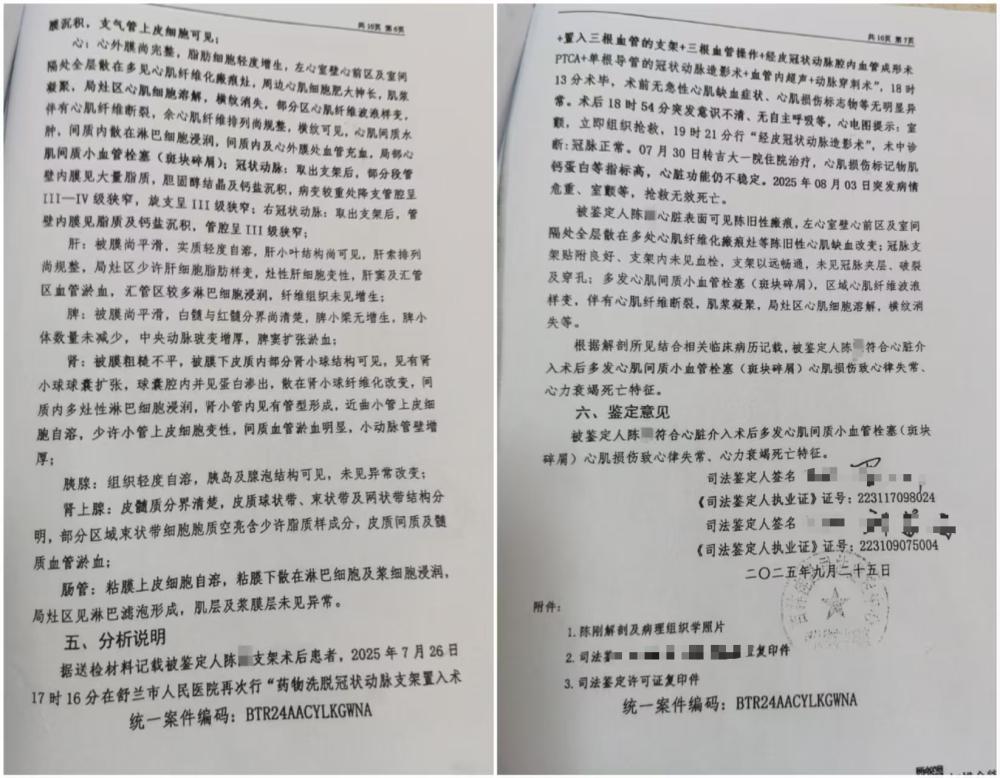 共16页 第6页
膜沉积，支气管上皮细胞可见；
心：心外膜尚完整，脂肪细胞轻度增生，左心室壁心前区及室间
隔处全层散在多见心肌纤维化瘢痕灶，周边心肌细胞肥大抻长，肌浆
凝聚，局灶区心肌细胞溶解，横纹消失，部分区心肌纤维波浪样变，
伴有心肌纤维断裂，余心肌纤维排列尚规整，横纹可见，心肌间质水
肿，间质内散在淋巴细胞浸润，间质内及心外膜处血管充血，局部心
肌间质小血管栓塞（斑块碎屑）；冠状动脉：取出支架后，部分段管
壁内膜见大量脂质，胆固醇结晶及钙盐沉积，病变较重处降支管腔呈
III—IV级狭窄，旋支呈III级狭窄；右冠状动脉：取出支架后，管
壁内膜见脂质及钙盐沉积，管腔呈III级狭窄；
肝：被膜尚平滑，实质轻度自溶，肝小叶结构尚可见，肝索排列
尚规整，局灶区少许肝细胞脂肪样变，灶性肝细胞变性，肝窦及汇管
区血管淤血，汇管区较多淋巴细胞浸润，纤维组织未见增生；
脾：被膜尚平滑，白髓与红髓分界尚清楚，脾小梁无增生，脾小
体数量未减少，中央动脉玻变增厚，脾窦扩张淤血；
肾：被膜粗糙不平，被膜下皮质内部分肾小球结构可见，见有肾
小球球囊扩张，球囊腔内并见蛋白渗出，散在肾小球纤维化改变，间
质内多灶性淋巴细胞浸润，肾小管内见有管型形成，近曲小管上皮细
胞自溶，少许小管上皮细胞变性，间质血管淤血明显，小动脉管壁增
厚；
胰腺：组织轻度自溶，胰岛及腺泡结构可见，未见异常改变；
肾上腺：皮髓质分界清楚，皮质球状带、束状带及网状带结构分
明，部分区域束状带细胞胞质空亮含少许脂质样成分，皮质间质及髓
质血管淤血；
肠管：粘膜上皮细胞自溶，粘膜下散在淋巴细胞及浆细胞浸润，
局灶区见淋巴滤泡形成，肌层及浆膜层未见异常。
五、分析说明
据送检材料记载被鉴定人陈 支架术后患者，2025年7月26日
17时16分在舒兰市人民医院再次行“药物洗脱冠状动脉支架置入术
统一案件编码：BTR24AACYLKGWNA
共16页 第7页
+置入三根血管的支架+三根血管操作+经皮冠状动脉腔内血管成形术
PTCA+单根导管的冠状动脉造影术+血管内超声+动脉穿刺术”，18时
13分术毕，术前无急性心肌缺血症状、心肌损伤标志物等无明显异
常。术后18时54分突发意识不清、无自主呼吸等，心电图提示：室
颤，立即组织抢救，19时21分行“经皮冠状动脉造影术”，术中诊
断：冠脉正常。07月30日转吉大一院住院治疗，心肌损伤标记物肌
钙蛋白等指标高，心脏功能仍不稳定。2025年08月03日突发病情
危重、室颤等，抢救无效死亡。
被鉴定人陈 心脏表面可见陈旧性瘢痕，左心室壁心前区及室间
隔处全层散在多处心肌纤维化瘢痕灶等陈旧性心肌缺血改变；冠脉支
架贴附良好、支架内未见血栓，支架以远畅通，未见冠脉夹层、破裂
及穿孔；多发心肌间质小血管栓塞（斑块碎屑），区域心肌纤维波浪
样变，伴有心肌纤维断裂，肌浆凝聚，局灶区心肌细胞溶解，横纹消
失等。
根据解剖所见结合相关临床病历记载，被鉴定人陈 符合心脏介
入术后多发心肌间质小血管栓塞（斑块碎屑）心肌损伤致心律失常、
心力衰竭死亡特征。
六、鉴定意见
被鉴定人陈 符合心脏介入术后多发心肌间质小血管栓塞（斑块
碎屑）心肌损伤致心律失常、心力衰竭死亡特征。
司法鉴定人签名
《司法鉴定人执业证》证号：223117098024
司法鉴定人签名
《司法鉴定人执业证》证号：223109075004
二〇二五年九月二十五日
附件：
1.陈刚解剖及病理组织学照片
2.司法 复印件
3.司法鉴定许可证复印件
统一案件编码：BTR24AACYLKGWNA